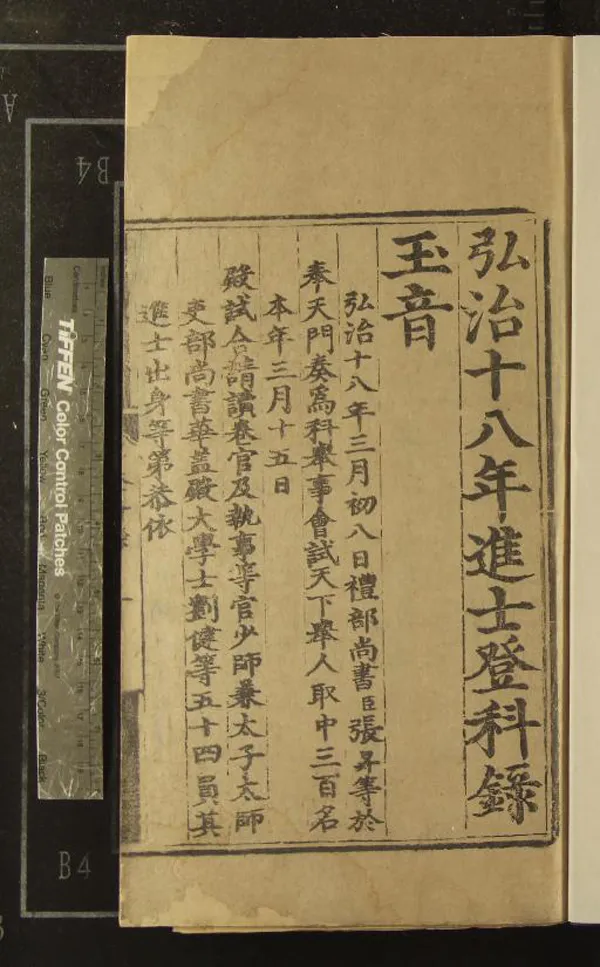 弘治十八年進士登科錄
玉音
弘治十八年三月初八日禮部尚書臣張昇等於
奉天門奏為科舉事會試天下舉人取中三百名
本年三月十五日
殿試合請讀卷官及執事等官少師兼太子太師
吏部尚書華蓋殿大學士劉健等五十四員其
進士出身等第恭依
TIFFEN Color Control Patches
Blue
Green
Yellow
Magenta
White
3/Color
Black
Centimetres
A
B4
B4